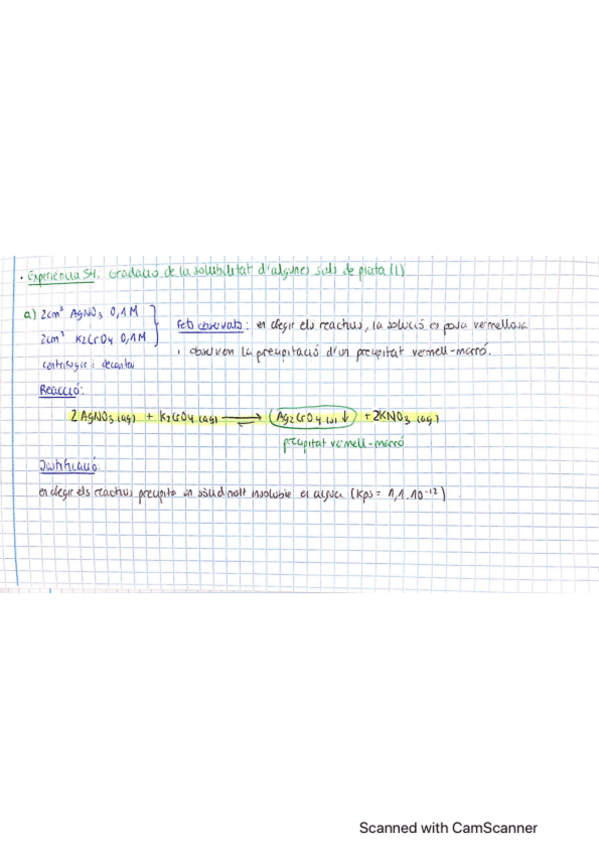 · Experiència 54. Gradació de la solubilitat d'algunes sals de plata (1)
a) 2cm³ AgNO₃ 0,1M
2cm³ K₂CrO₄ 0,1M
centrifugar i decantar
Fets observats: en afegir els reactius, la solució es posa vermellosa
i observem la precipitació d'un precipitat vermell-marró.
Reacció:
2 AgNO₃ (aq) + K₂CrO₄ (aq) ⇌ Ag₂CrO₄ (s)↓ + 2KNO₃ (aq)
precipitat vermell-marró
Justificació:
en afegir els reactius precipita un sòlid molt insoluble en aigua (Kps = 1,1·10⁻¹²)
Scanned with CamScanner